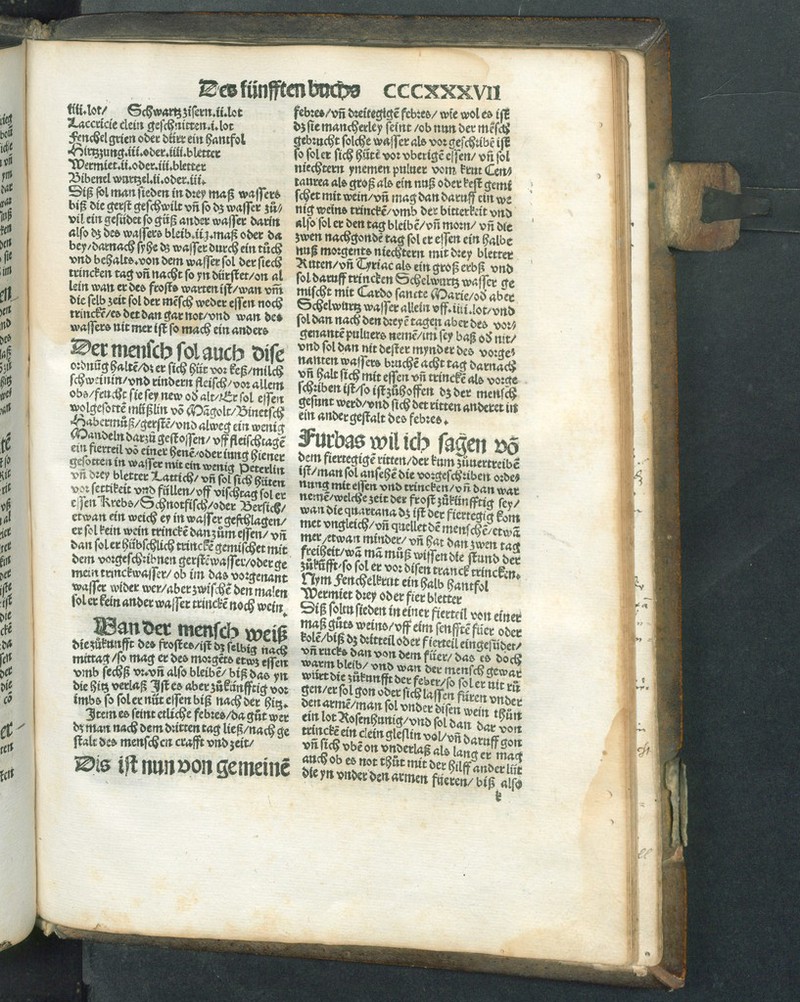 Des fünfften buchs CCCXXXVII
iiii.lot/ Schwartz zisern.ii.lot
Laccricie clein geschnitten.i.lot
Fenchel grien oder dürr ein hantfol
Hirtzzung.iii.oder.iiii.bletter
Wermiet.ii.oder.iii.bletter
Bibenel wurtzel.ii.oder.iii.
Diß sol man sieden in drey maß wassers
biß die gerst geschwilt vñ so dz wasser zů/
vil ein gesüdet so güß ander wasser darin
also dz des wassers bleib.ii.maß oder da
bey/darnach syhe dz wasser durch ein tůch
vnd behalts.von dem wasser sol der siech
trincken tag vñ nacht so yn dürstet/on al
lein wan er des frosts warten ist/wan vm̃
die selb zeit sol der mẽsch weder essen noch
trinckẽ/es det dan gar not/vnd wan des
wassers nit mer ist so mach ein anders
Der mensch sol auch dise
ordnũg haltẽ/dz er sich hüt vor keß/milch
schweinin/vnd rindern fleisch/vor allem
obs/feucht sie sey new od alt/Er sol essen
wolgesottẽ müßlin võ Mãgolt/Binetsch
Habermůß/gerstẽ/vnd alweg ein wenig
Mandeln darzů gestossen/vff fleischtagẽ
ein fierteil võ einer Henẽ/oder iung hiener
gesotten in wasser mit ein wenig Peterlin
vñ drey bletter Lattich/vñ sol sich hüten
vor fettikeit vnd füllen/vff vischtag sol er
essen Krebs/Schnotfisch/oder Bersich/
etwan ein weich ey in wasser geschlagen/
er sol kein wein trinckẽ dan zům essen/vñ
dan sol er hübschlich trinckẽ gemischet mit
dem vorgeschribnen gerstẽwasser/oder ge
mein trinckwasser/ob im das vorgenant
wasser wider wer/aber zwischẽ den malen
sol er kein ander wasser trinckẽ noch wein.
Wan der mensch weiß
die zůkunfft des frostes/ist dz selbig nach
mittag/so mag er des morgẽts etwz essen
vmb sechß vr.vñ also bleibẽ/biß das yn
die hitz verlaß Ist es aber zůkünfftig vor
imbs so sol er nüt essen biß nach der hitz.
Item es seint etliche febres/da gůt wer
dz man nach dem dritten tag ließ/nach ge
stalt des menschen crafft vnd zeit/
Dis ist nun von gemeinẽ
febres/vñ dreitegigẽ febres/wie wol es ist
dz sie mancherley seint/ob nun der mẽsch
gebrucht solche wasser als vor geschribẽ ist
so sol er sich hütẽ vor vberigẽ essen/vñ sol
niechtern ynemen puluer vom krut Cen/
taurea als groß als ein nuß oder kest gemi
schet mit wein/vñ mag dan daruff ein we
nig weins trinckẽ/vmb der bitterkeit vnd
also sol er den tag bleibẽ/vñ morn/vñ die
zwen nachgondẽ tag sol er essen ein halbe
nuß morgents niechtern mit drey bletter
Ruten/vñ Tyriac als ein groß erbß vnd
sol daruff trincken Schelwurtz wasser ge
mischt mit Cardo sancte Marie/od aber
Schelwurtz wasser allein vff.iiii.lot/vnd
sol dan nach den dreyẽ tagen aber des vor/
genantẽ puluers nemẽ/im sey baß od nit/
vnd sol dan nit dester mynder des vorge/
nanten wassers bruchẽ acht tag darnach
vñ halt sich mit essen vñ trinckẽ als vorge
schriben ist/so ist zůhoffen dz der mensch
gesunt werd/vnd sich der ritten anderet in
ein ander gestalt des febres.
Furbas wil ich sagẽn võ
dem fiertegigẽ ritten/der kum zůuertreibẽ
ist/man sol ansehẽ die vorgeschriben ordes
nung mit essen vnd trincken/vñ dan war
nemẽ/welche zeit der frost zůkünfftig sey/
wan die quartana dz ist der fiertegig kom
met vngleich/vñ quellet dẽ menschẽ/etwã
mer/etwan minder/vñ hat dan zwen tag
freiheit/wã mã můß wissen die stund der
zůkũfft/so sol er vor disen tranck trincken.
Nym Fenchelkrut ein halb hantfol
Wermiet drey oder fier bletter
Diß soltu sieden in einer fierteil von einer
maß gůts weins/vff eim senfftẽ füer oder
kolẽ/biß dz dritteil oder fierteil eingesüdet/
vñ rucks dan von dem füer/das es doch
warm bleib/vnd wan der mensch gewar
würt die zůkunfft der feber/so sol er nit rů
gen/er sol gon oder sich lassen füren vnder
den armẽ/man sol vnder disen wein thůn
ein lot Rosenhunig/vnd sol dan dar von
trinckẽ ein clein gleßlin vol/vñ daruff gon
vñ sich vbẽ on vnderlaß als lang er mag
auch ob es not thůt mit der hilff ander lüt
die yn vnder den armen füeren/biß also
k